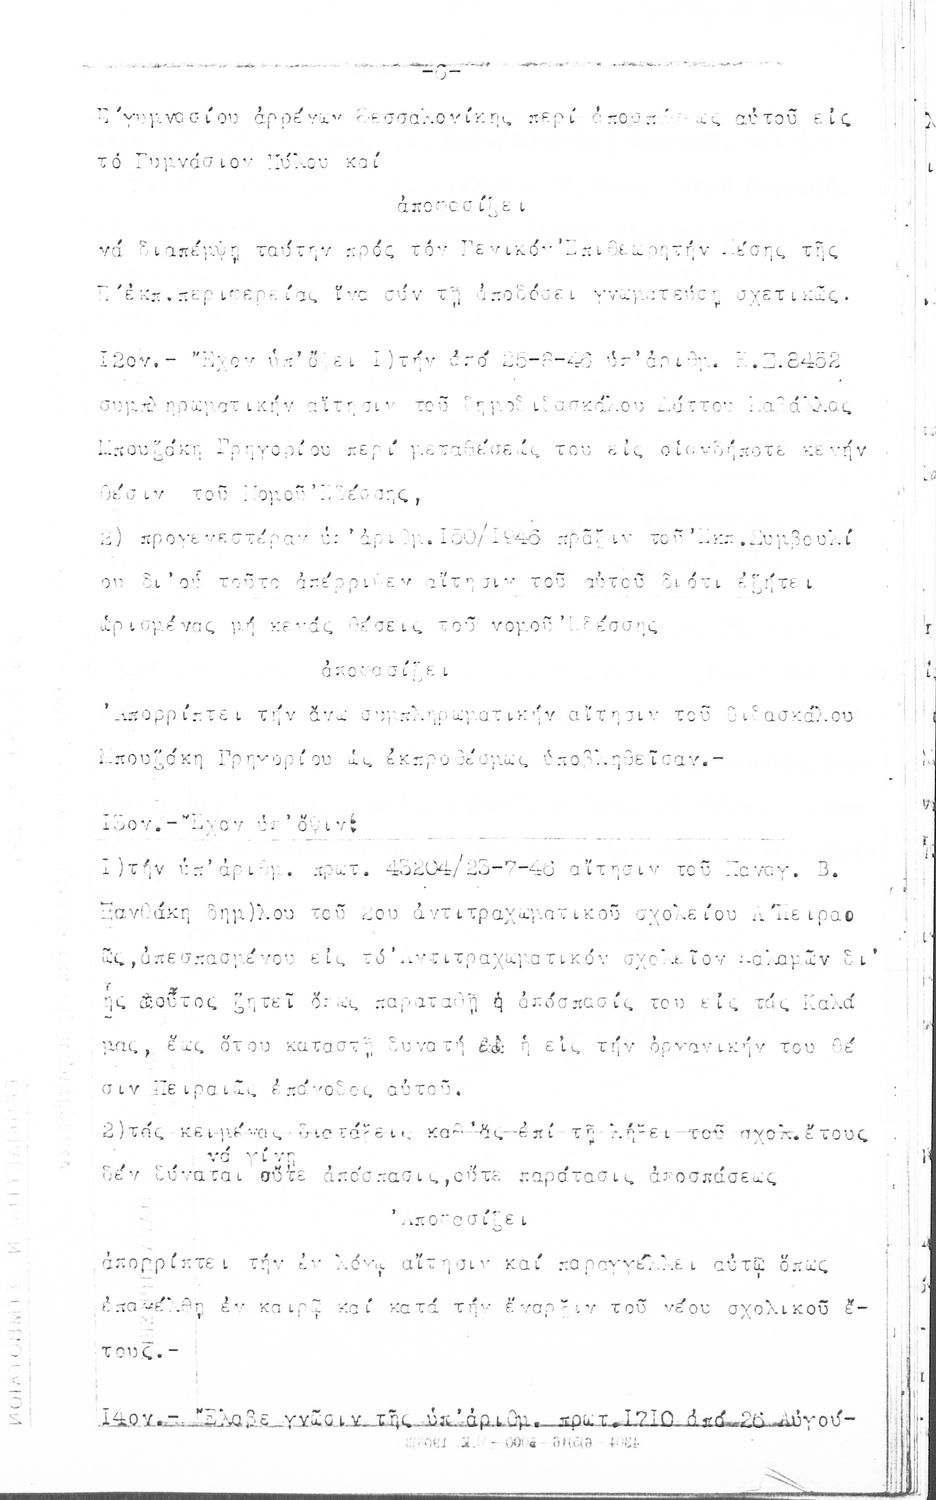 -6-
Ε΄γυμνασίου ἀρρένων Θεσσαλονίκης περί ἀποσπάσεως αὐτοῦ εἰς
τό Γυμνάσιον Πύλου καί
ἀποφασίζει
νά διαπέμψῃ ταύτην πρός τόν Γενικόν Ἐπιθεωρητήν Μέσης τῆς
Ε΄ἐκπ.περιφερείας ἵνα σύν τῇ ἀποδόσει γνωματεύσῃ σχετικῶς.
I2ον.- Ἔχον ὑπ'ὄψει I)τήν ἀπό 25-8-46 ὑπ'ἀριθμ. 8452
συμπληρωματικήν αἴτησιν τοῦ δημοδιδασκάλου Καβάλλας
Μπουζάκη Γρηγορίου περί μεταθέσεώς του εἰς οἱανδήποτε κενήν
θέσιν τοῦ Νομοῦ Ἐδέσσης,
2) προγενεστέραν ὑπ'ἀριθμ.I50/I946 πρᾶξιν τοῦ Ἐκπ.Συμβουλί
ου δι'οὗ τοῦτο ἀπέρριψεν αἴτησιν τοῦ αὐτοῦ διότι ἐζήτει
ὡρισμένας μή κενάς θέσεις τοῦ νομοῦ Ἐδέσσης
ἀποφασίζει
Ἀπορρίπτει τήν ἄνω συμπληρωματικήν αἴτησιν τοῦ διδασκάλου
Μπουζάκη Γρηγορίου ὡς ἐκπροθέσμως ὑποβληθεῖσαν.-
I3ον.-Ἔχον ὑπ'ὄψιν:
I)τήν ὑπ'ἀριθμ. πρωτ. 43204/23-7-46 αἴτησιν τοῦ Παναγ. Β.
Ξανθάκη δημ)λου τοῦ 2ου ἀντιτραχωματικοῦ σχολείου Α΄Πειραο
ῶς,ἀπεσπασμένου εἰς τό Ἀντιτραχωματικόν σχολεῖον Καλαμῶν δι'
ἧς οὗτος ζητεῖ ὅπως παραταθῇ ἡ ἀπόσπασίς του εἰς τάς Καλά
μας, ἕως ὅτου καταστῇ δυνατή ἡ εἰς τήν ὀργανικήν του θέ
σιν Πειραιῶς ἐπάνοδος αὐτοῦ.
2)τάς κειμένας διατάξεις καθ'ἅς ἐπί τῇ λήξει τοῦ σχολ.ἔτους
νά γίνῃ
δέν δύναται οὔτε ἀπόσπασις,οὔτε παράτασις ἀποσπάσεως
Ἀποφασίζει
ἀπορρίπτει τήν ἐν λόγῳ αἴτησιν καί παραγγέλλει αὐτῷ ὅπως
ἐπανέλθῃ ἐν καιρῷ καί κατά τήν ἔναρξιν τοῦ νέου σχολικοῦ ἔ-
τους.-
I4ον.- Ἔλαβε γνῶσιν τῆς ὑπ'ἀριθμ. πρωτ.I7I0 ἀπό 26 Αὐγού-